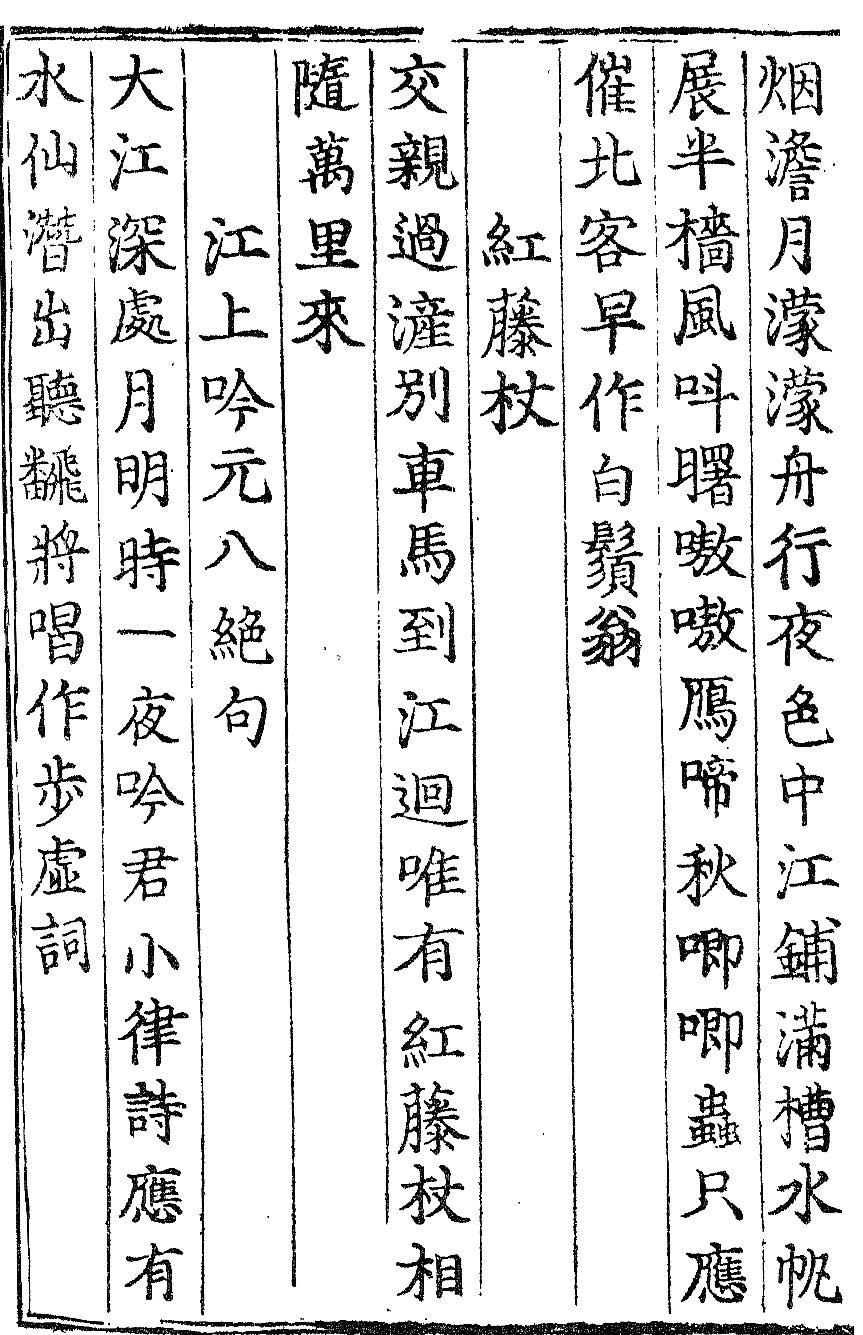 烟澹月濛濛舟行夜色中江鋪滿槽水帆
展半檣風呌曙嗷嗷鴈啼秋唧唧蟲只應
催北客早作白鬚翁
紅藤杖
交親過滻別車馬到江迴唯有紅藤杖相
隨萬里來
江上吟元八絕句
大江深處月明時一夜吟君小律詩應有
水仙潛出聽飜將唱作步虛詞